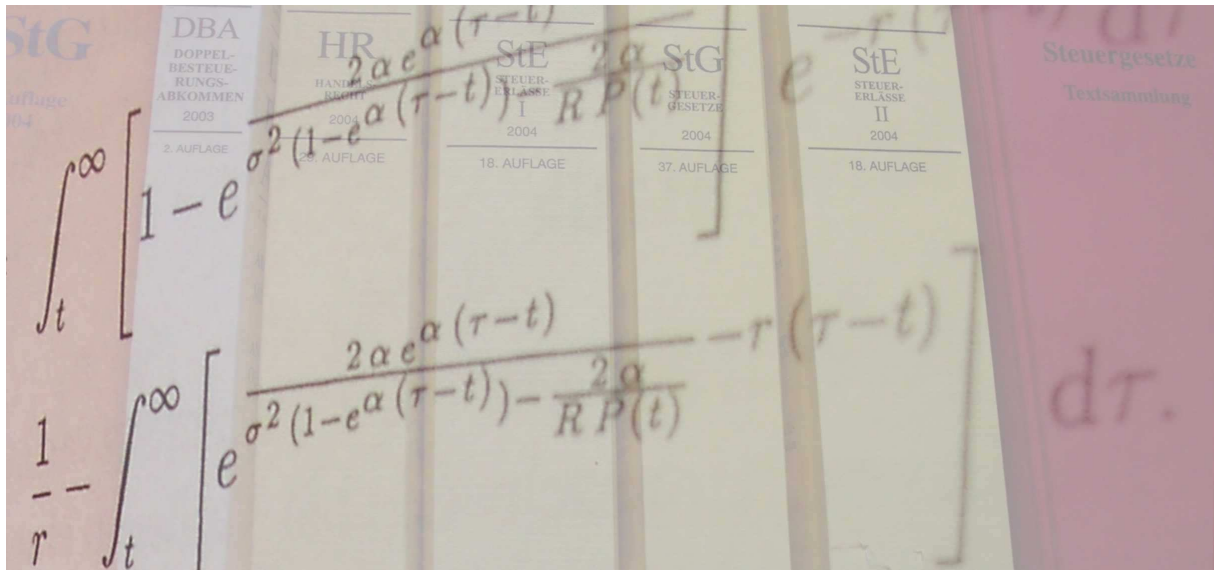 StG
uflage
DBA
DOPPEL-
BESTEUE-
RUNGS-
ABKOMMEN
2003
2. AUFLAGE
HR
HANDELS-
RECHT
2004
29. AUFLAGE
StE
STEUER-
ERLÄSSE
I
2004
18. AUFLAGE
StG
STEUER-
GESETZE
2004
37. AUFLAGE
StE
STEUER-
ERLÄSSE
II
2004
18. AUFLAGE
Steuergesetze
Textsammlung
∫_t^∞ [1 − e^{\frac{2 α e^{α (τ−t)}}{σ^2 (1−e^{α (τ−t)}) − \frac{2 α}{R P(t)}}}] e^{−r (τ−t)} dτ
\frac{1}{r} − ∫_t^∞ [e^{\frac{2 α e^{α (τ−t)}}{σ^2 (1−e^{α (τ−t)}) − \frac{2 α}{R P(t)}} − r (τ−t)}] dτ.